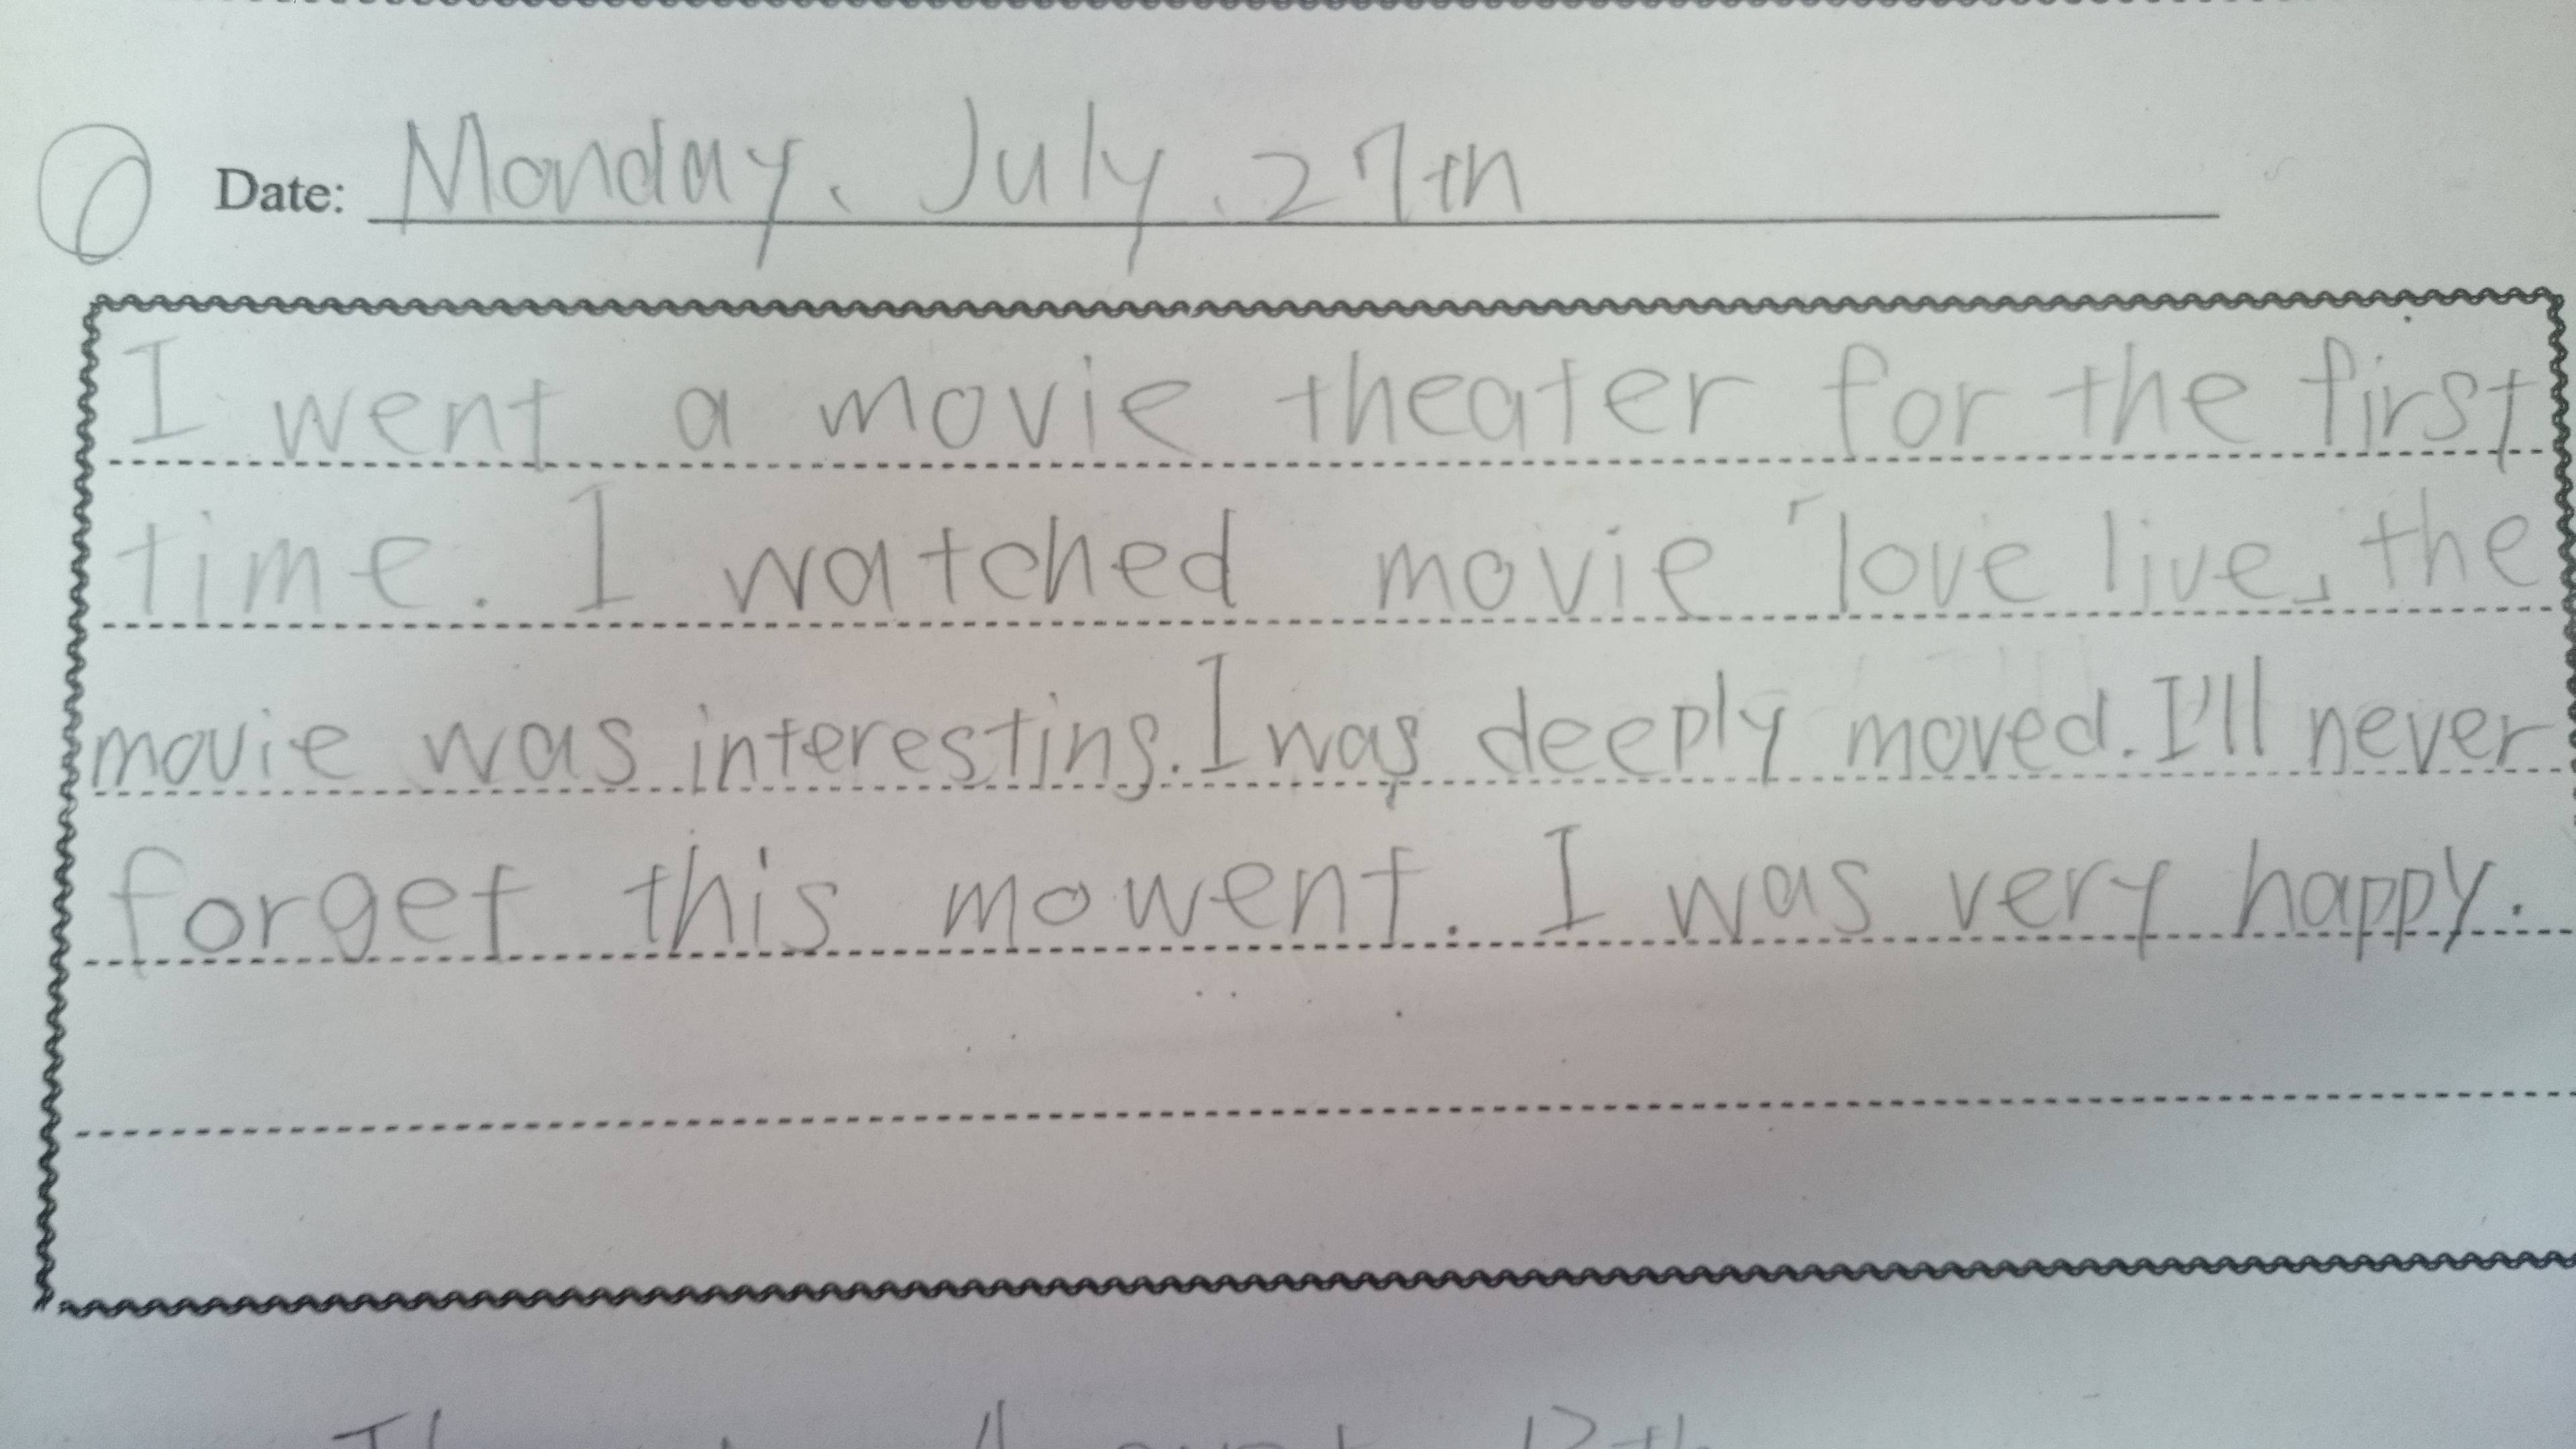 Date: Monday, July, 27th
I went a movie theater for the first
time. I watched movie「love live」the
movie was interesting. I was deeply moved. I'll never
forget this mowent. I was very happy.